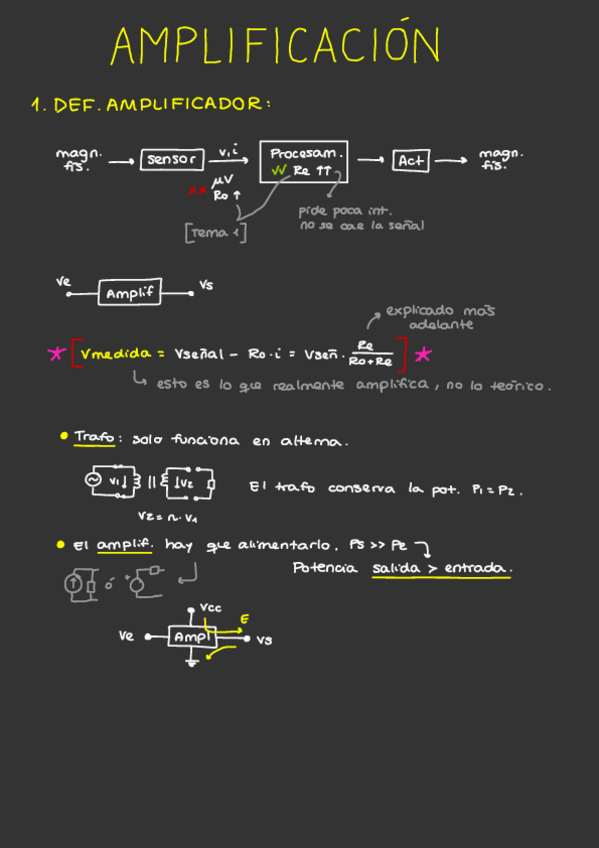 AMPLIFICACIÓN
1. DEF. AMPLIFICADOR:
magn. fis. → sensor → v,i → Procesam. ✓✓ Re ↑↑ → Act → magn. fis.
×× μV
Ro ↑
[Tema 1]
pide poca int.
no se cae la señal
Ve Amplif Vs
explicado más
adelante
* [Vmedida = Vseñal - Ro·i = Vseñ· Re/(Ro+Re)] *
esto es lo que realmente amplifica, no lo teórico.
• Trafo: solo funciona en alterna.
V1↓ ↓V2
El trafo conserva la pot. P1 = P2.
V2 = n·V1
• El amplif. hay que alimentarlo. Ps >> Pe
ó
Potencia salida > entrada.
Vcc
E
Ve Ampl Vs